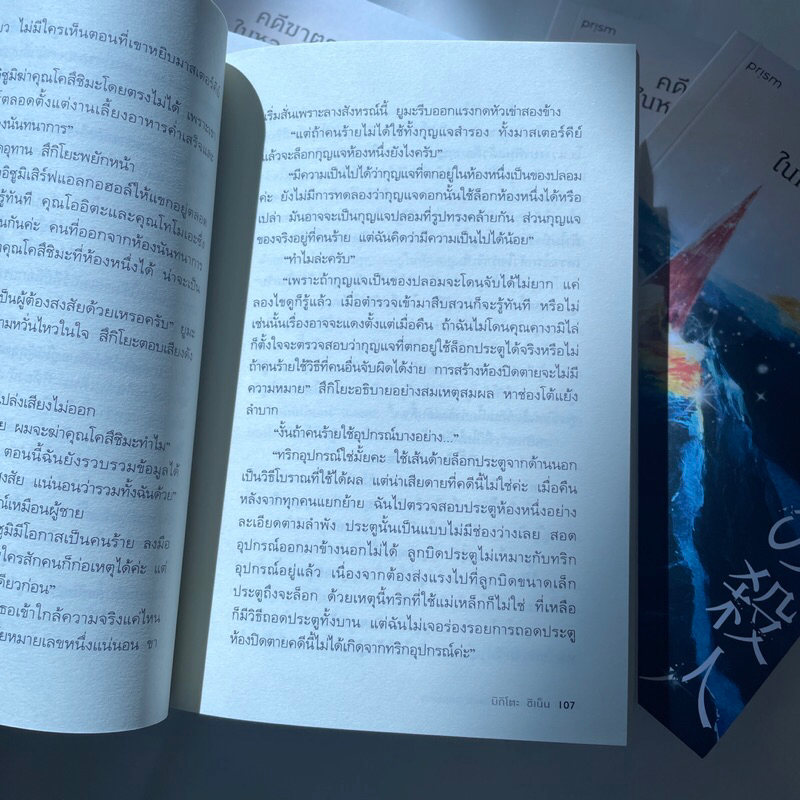 คดีฆาตกร
prism
คดี
prism
ว ไม่มีใครเห็นตอนที่เขาหยิบมาสเตอร์คีย์
อิซูมิฆ่าคุณโคสึชิมะโดยตรงไม่ได้ เพราะเขา
ตลอดตั้งแต่งานเลี้ยงอาหารค่ำเสร็จและ
องนันทนาการ"
อุทาน สึกิโยะพยักหน้า
อิซูมิเสิร์ฟแอลกอฮอล์ให้แขกอยู่ตลอด
รู้ทันที คุณโออิตะและคุณโทโมเอะซึ่ง
นกันค่ะ คนที่ออกจากห้องนันทนาการ
คุณโคสึชิมะที่ห้องหนึ่งได้ น่าจะเป็น
เป็นผู้ต้องสงสัยด้วยเหรอครับ" ยูมะ
ามหวั่นไหวในใจ สึกิโยะตอบเสียงดัง
ปล่งเสียงไม่ออก
ย ผมจะฆ่าคุณโคสึชิมะทำไม"
ตอนนี้ฉันยังรวบรวมข้อมูลได้
งสัย แน่นอนว่ารวมทั้งฉันด้วย"
ณ์เหมือนผู้ชาย
ซูมิมีโอกาสเป็นคนร้าย ลงมือ
ใครสักคนก็ก่อเหตุได้ค่ะ แต่
ดียวก่อน"
ธอเข้าใกล้ความจริงแค่ไหน
ยหมายเลขหนึ่งแน่นอน ขา
เริ่มสั่นเพราะลางสังหรณ์นี้ ยูมะรีบออกแรงกดหัวเข่าสองข้าง
"แต่ถ้าคนร้ายไม่ได้ใช้ทั้งกุญแจสำรอง ทั้งมาสเตอร์คีย์
แล้วจะล็อกกุญแจห้องหนึ่งยังไงครับ"
"มีความเป็นไปได้ว่ากุญแจที่ตกอยู่ในห้องหนึ่งเป็นของปลอม
ค่ะ ยังไม่มีการทดลองว่ากุญแจดอกนั้นใช้ล็อกห้องหนึ่งได้หรือ
เปล่า มันอาจจะเป็นกุญแจปลอมที่รูปทรงคล้ายกัน ส่วนกุญแจ
ของจริงอยู่ที่คนร้าย แต่ฉันคิดว่ามีความเป็นไปได้น้อย"
"ทำไมล่ะครับ"
"เพราะถ้ากุญแจเป็นของปลอมจะโดนจับได้ไม่ยาก แค่
ลองไขดูก็รู้แล้ว เมื่อตำรวจเข้ามาสืบสวนก็จะรู้ทันที หรือไม่
เช่นนั้นเรื่องอาจจะแดงตั้งแต่เมื่อคืน ถ้าฉันไม่โดนคุณคางามิไล่
ก็ตั้งใจจะตรวจสอบว่ากุญแจที่ตกอยู่ใช้ล็อกประตูได้จริงหรือไม่
ถ้าคนร้ายใช้วิธีที่คนอื่นจับผิดได้ง่าย การสร้างห้องปิดตายจะไม่มี
ความหมาย" สึกิโยะอธิบายอย่างสมเหตุสมผล หาช่องโต้แย้ง
ลำบาก
"งั้นถ้าคนร้ายใช้อุปกรณ์บางอย่าง..."
"ทริกอุปกรณ์ใช่มั้ยคะ ใช้เส้นด้ายล็อกประตูจากด้านนอก
เป็นวิธีโบราณที่ใช้ได้ผล แต่น่าเสียดายที่คดีนี้ไม่ใช่ค่ะ เมื่อคืน
หลังจากทุกคนแยกย้าย ฉันไปตรวจสอบประตูห้องหนึ่งอย่าง
ละเอียดตามลำพัง ประตูนั้นเป็นแบบไม่มีช่องว่างเลย สอด
อุปกรณ์ออกมาข้างนอกไม่ได้ ลูกบิดประตูไม่เหมาะกับทริก
อุปกรณ์อยู่แล้ว เนื่องจากต้องส่งแรงไปที่ลูกบิดขนาดเล็ก
ประตูถึงจะล็อก ด้วยเหตุนี้ทริกที่ใช้แม่เหล็กก็ไม่ใช่ ที่เหลือ
ก็มีวิธีถอดประตูทั้งบาน แต่ฉันไม่เจอร่องรอยการถอดประตู
ห้องปิดตายคดีนี้ไม่ได้เกิดจากทริกอุปกรณ์ค่ะ"
ชิกิโตะ ชิเน็น 107
の殺人